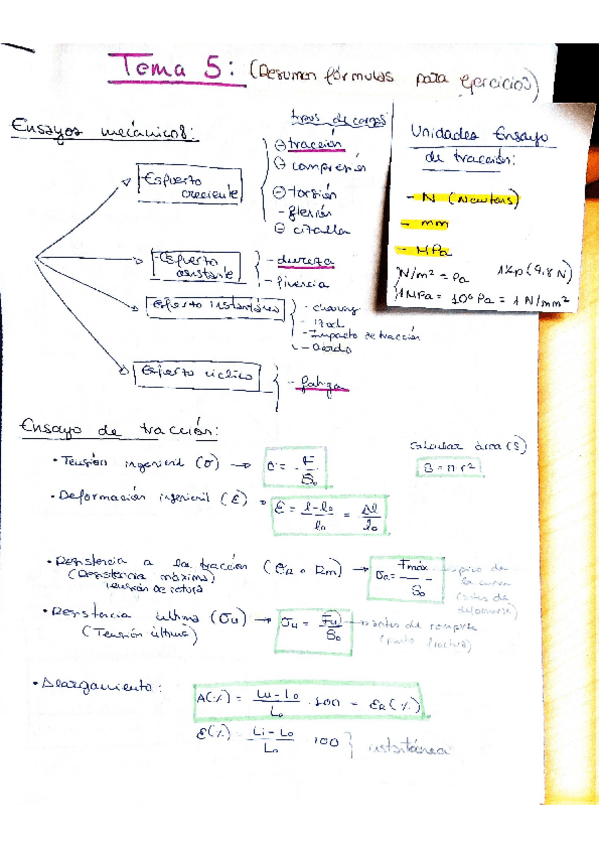 Tema 5: (Resumen fórmulas para ejercicios)
Ensayos mecánicos:
tipos de cargas
Esfuerzo creciente
- tracción
- compresión
- torsión
- flexión
- cizalla
Esfuerzo constante
- dureza
- fluencia
Esfuerzo instantáneo
- charpy
- Izod
- Impacto de tracción
Esfuerzo cíclico
- fatiga
Unidades Ensayo
de tracción:
- N (Newtons)
- mm
- MPa
N/m² = Pa 1Kp (9.8 N)
1MPa = 10⁶ Pa = 1 N/mm²
Ensayo de tracción:
Calcular área (S)
S = π r²
• Tensión ingenieril (σ) → σ = F/S₀
• Deformación ingenieril (ε) → ε = l-l₀/l₀ = Δl/l₀
• Resistencia a la tracción (σR o Rm) → σR = Fmáx/S₀ → pico de
(Resistencia máxima) la curva
tensión de rotura (antes de
deformarse)
• Resistencia última (σu) → σu = Fu/S₀ → antes de romperse
(Tensión última) (punto fractura)
• Alargamiento:
A(%) = Lu-L₀/L₀ · 100 = εR (%)
ε(%) = Li-L₀/L₀ 100 } instantánea